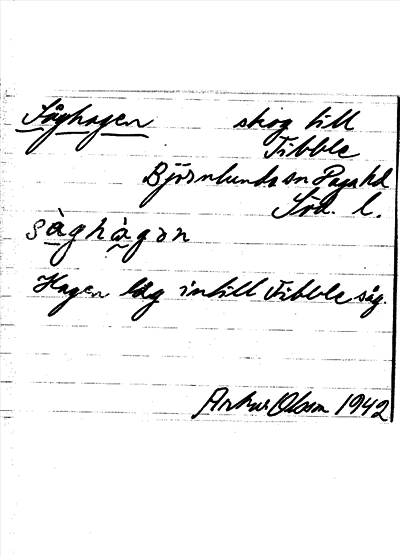 Såghagen skog till
Fibble
Björnlunda sn Daga hd
Söd. l.
såghàgən
Hagen låg intill Fibble såg.
Arthur Olsson 1942